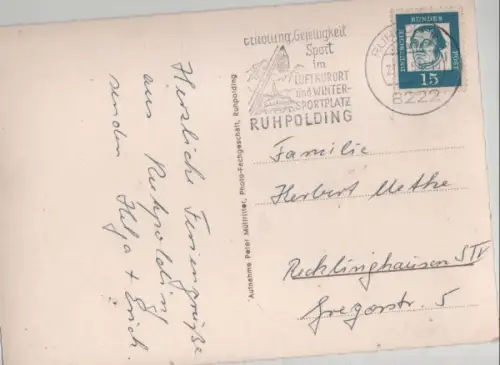 Herzliche Feriengrüße
aus Ruhpolding
senden Helga + Erich.
Aufnahme Peter Müllritter, Photo-Fachgeschäft, Ruhpolding
Erholung, Geselligkeit
Sport
im
LUFTKURORT
und WINTER-
SPORTPLATZ
RUHPOLDING
8222
DEUTSCHE
BUNDES
POST
15
Familie
Herbert Methe
Recklinghausen STV
Gregorstr. 5